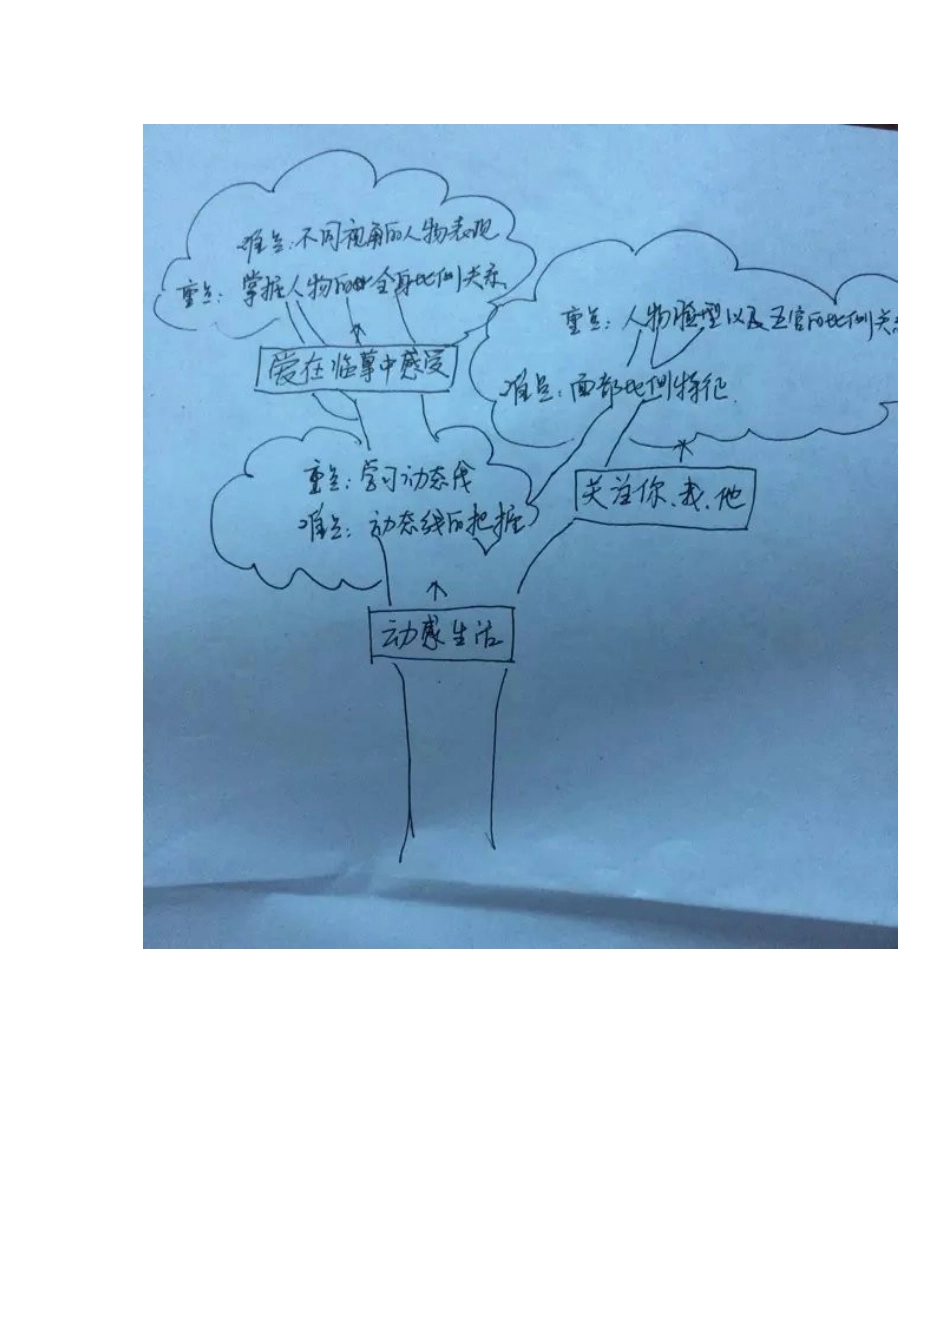 难点：不同视角的人物表现
重点：掌握人物的全身比例关系
爱在临摹中感受
重点：人物脸型以及五官的比例关
难点：面部比例特征.
重点：学习动态线
难点：动态线的把握
关注你、我、他
动感生活